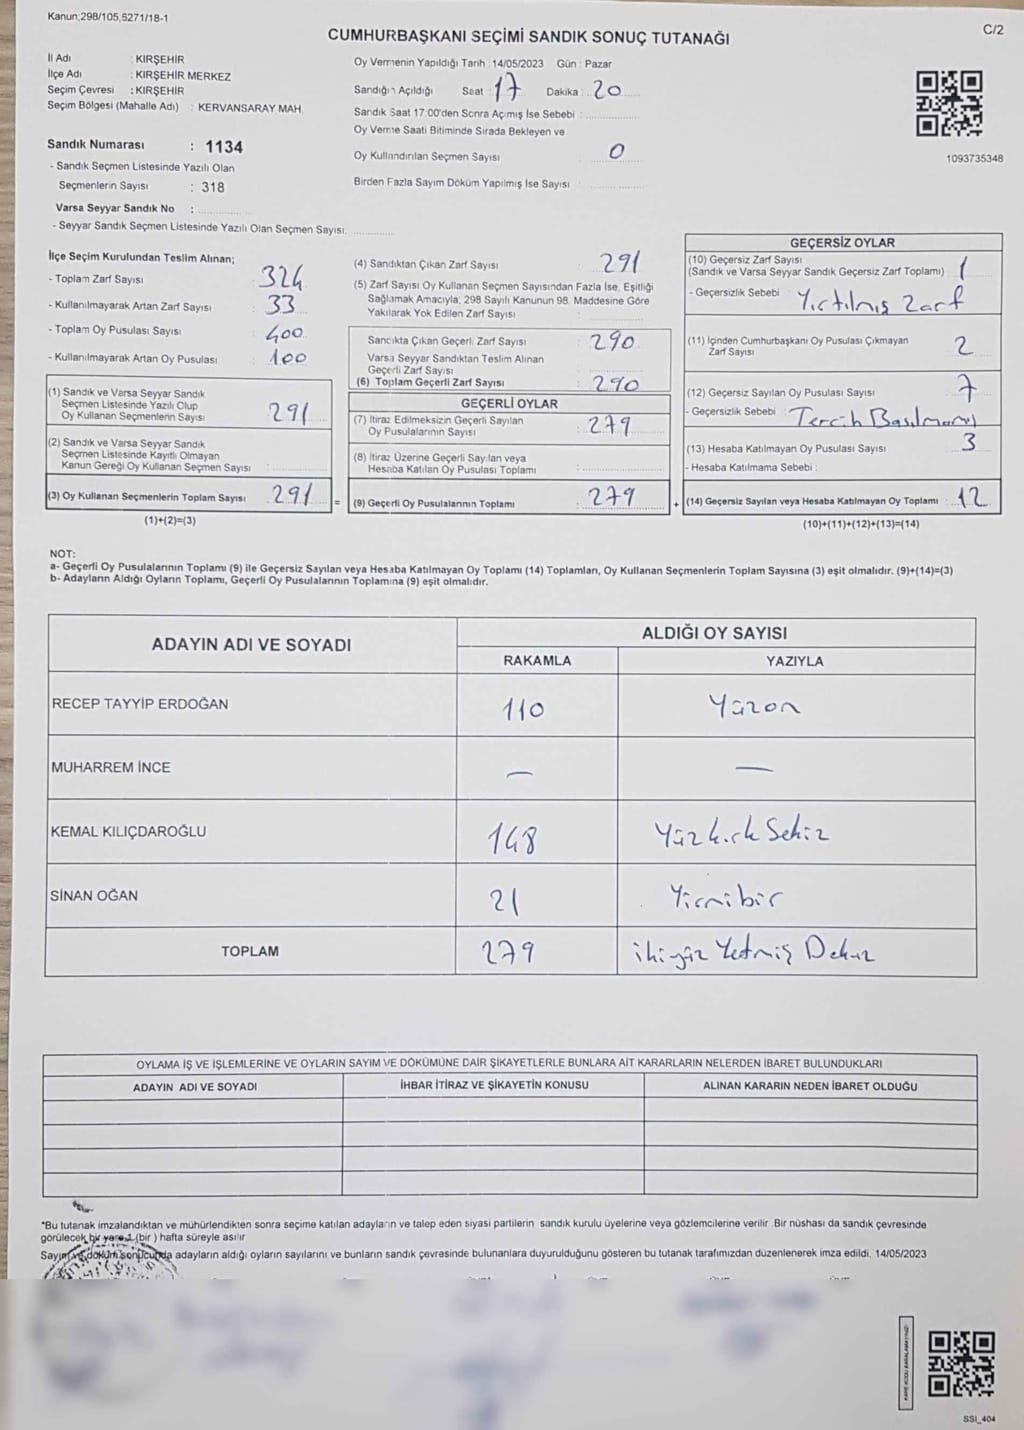 Kanun;298/105,5271/18-1
C/2
CUMHURBAŞKANI SEÇİMİ SANDIK SONUÇ TUTANAĞI
İl Adı : KIRŞEHİR
İlçe Adı : KIRŞEHİR MERKEZ
Seçim Çevresi : KIRŞEHİR
Seçim Bölgesi (Mahalle Adı) : KERVANSARAY MAH.
Sandık Numarası : 1134
- Sandık Seçmen Listesinde Yazılı Olan
Seçmenlerin Sayısı : 318
Varsa Seyyar Sandık No :
- Seyyar Sandık Seçmen Listesinde Yazılı Olan Seçmen Sayısı:
Oy Vermenin Yapıldığı Tarih : 14/05/2023 Gün : Pazar
Sandığın Açıldığı Saat : 17 Dakika : 20
Sandık Saat 17:00'den Sonra Açmış İse Sebebi :
Oy Verme Saati Bitiminde Sırada Bekleyen ve
Oy Kullandırılan Seçmen Sayısı : 0
Birden Fazla Sayım Döküm Yapılmış İse Sayısı :
1093735348
İlçe Seçim Kurulundan Teslim Alınan;
- Toplam Zarf Sayısı : 324
- Kullanılmayarak Artan Zarf Sayısı : 33
- Toplam Oy Pusulası Sayısı : 400
- Kullanılmayarak Artan Oy Pusulası : 100
(1) Sandık ve Varsa Seyyar Sandık
Seçmen Listesinde Yazılı Olup
Oy Kullanan Seçmenlerin Sayısı : 291
(2) Sandık ve Varsa Seyyar Sandık
Seçmen Listesinde Kayıtlı Olmayan
Kanun Gereği Oy Kullanan Seçmen Sayısı :
(3) Oy Kullanan Seçmenlerin Toplam Sayısı : 291 =
(1)+(2)=(3)
(4) Sandıktan Çıkan Zarf Sayısı : 291
(5) Zarf Sayısı Oy Kullanan Seçmen Sayısından Fazla İse, Eşitliği
Sağlamak Amacıyla; 298 Sayılı Kanunun 98. Maddesine Göre
Yakılarak Yok Edilen Zarf Sayısı :
Sandıkta Çıkan Geçerli Zarf Sayısı : 290
Varsa Seyyar Sandıktan Teslim Alınan
Geçerli Zarf Sayısı :
(6) Toplam Geçerli Zarf Sayısı : 290
GEÇERLİ OYLAR
(7) İtiraz Edilmeksizin Geçerli Sayılan
Oy Pusulalarının Sayısı : 279
(8) İtiraz Üzerine Geçerli Sayılan veya
Hesaba Katılan Oy Pusulası Toplamı :
(9) Geçerli Oy Pusulalarının Toplamı : 279 +
GEÇERSİZ OYLAR
(10) Geçersiz Zarf Sayısı
(Sandık ve Varsa Seyyar Sandık Geçersiz Zarf Toplamı) : 1
- Geçersizlik Sebebi : Yırtılmış Zarf
(11) İçinden Cumhurbaşkanı Oy Pusulası Çıkmayan
Zarf Sayısı : 2
(12) Geçersiz Sayılan Oy Pusulası Sayısı : 7
- Geçersizlik Sebebi : Tercih Basılmamış
(13) Hesaba Katılmayan Oy Pusulası Sayısı : 3
- Hesaba Katılmama Sebebi :
(14) Geçersiz Sayılan veya Hesaba Katılmayan Oy Toplamı : 12
(10)+(11)+(12)+(13)=(14)
NOT:
a- Geçerli Oy Pusulalarının Toplamı (9) ile Geçersiz Sayılan veya Hesaba Katılmayan Oy Toplamı (14) Toplamları, Oy Kullanan Seçmenlerin Toplam Sayısına (3) eşit olmalıdır. (9)+(14)=(3)
b- Adayların Aldığı Oyların Toplamı, Geçerli Oy Pusulalarının Toplamına (9) eşit olmalıdır.
ADAYIN ADI VE SOYADI
ALDIĞI OY SAYISI
RAKAMLA YAZIYLA
RECEP TAYYİP ERDOĞAN 110 Yüzon
MUHARREM İNCE — —
KEMAL KILIÇDAROĞLU 148 Yüzkırk Sekiz
SİNAN OĞAN 21 Yirmibir
TOPLAM 279 ikiyüz Yetmiş Dokuz
OYLAMA İŞ VE İŞLEMLERİNE VE OYLARIN SAYIM VE DÖKÜMÜNE DAİR ŞİKAYETLERLE BUNLARA AİT KARARLARIN NELERDEN İBARET BULUNDUKLARI
ADAYIN ADI VE SOYADI İHBAR İTİRAZ VE ŞİKAYETİN KONUSU ALINAN KARARIN NEDEN İBARET OLDUĞU
*Bu tutanak imzalandıktan ve mühürlendikten sonra seçime katılan adayların ve talep eden siyasi partilerin sandık kurulu üyelerine veya gözlemcilerine verilir .Bir nüshası da sandık çevresinde
görülecek bir yere 1 (bir ) hafta süreyle asılır
Sayım ve döküm sonucunda adayların aldığı oyların sayılarını ve bunların sandık çevresinde bulunanlara duyurulduğunu gösteren bu tutanak tarafımızdan düzenlenerek imza edildi. 14/05/2023
SSI_404